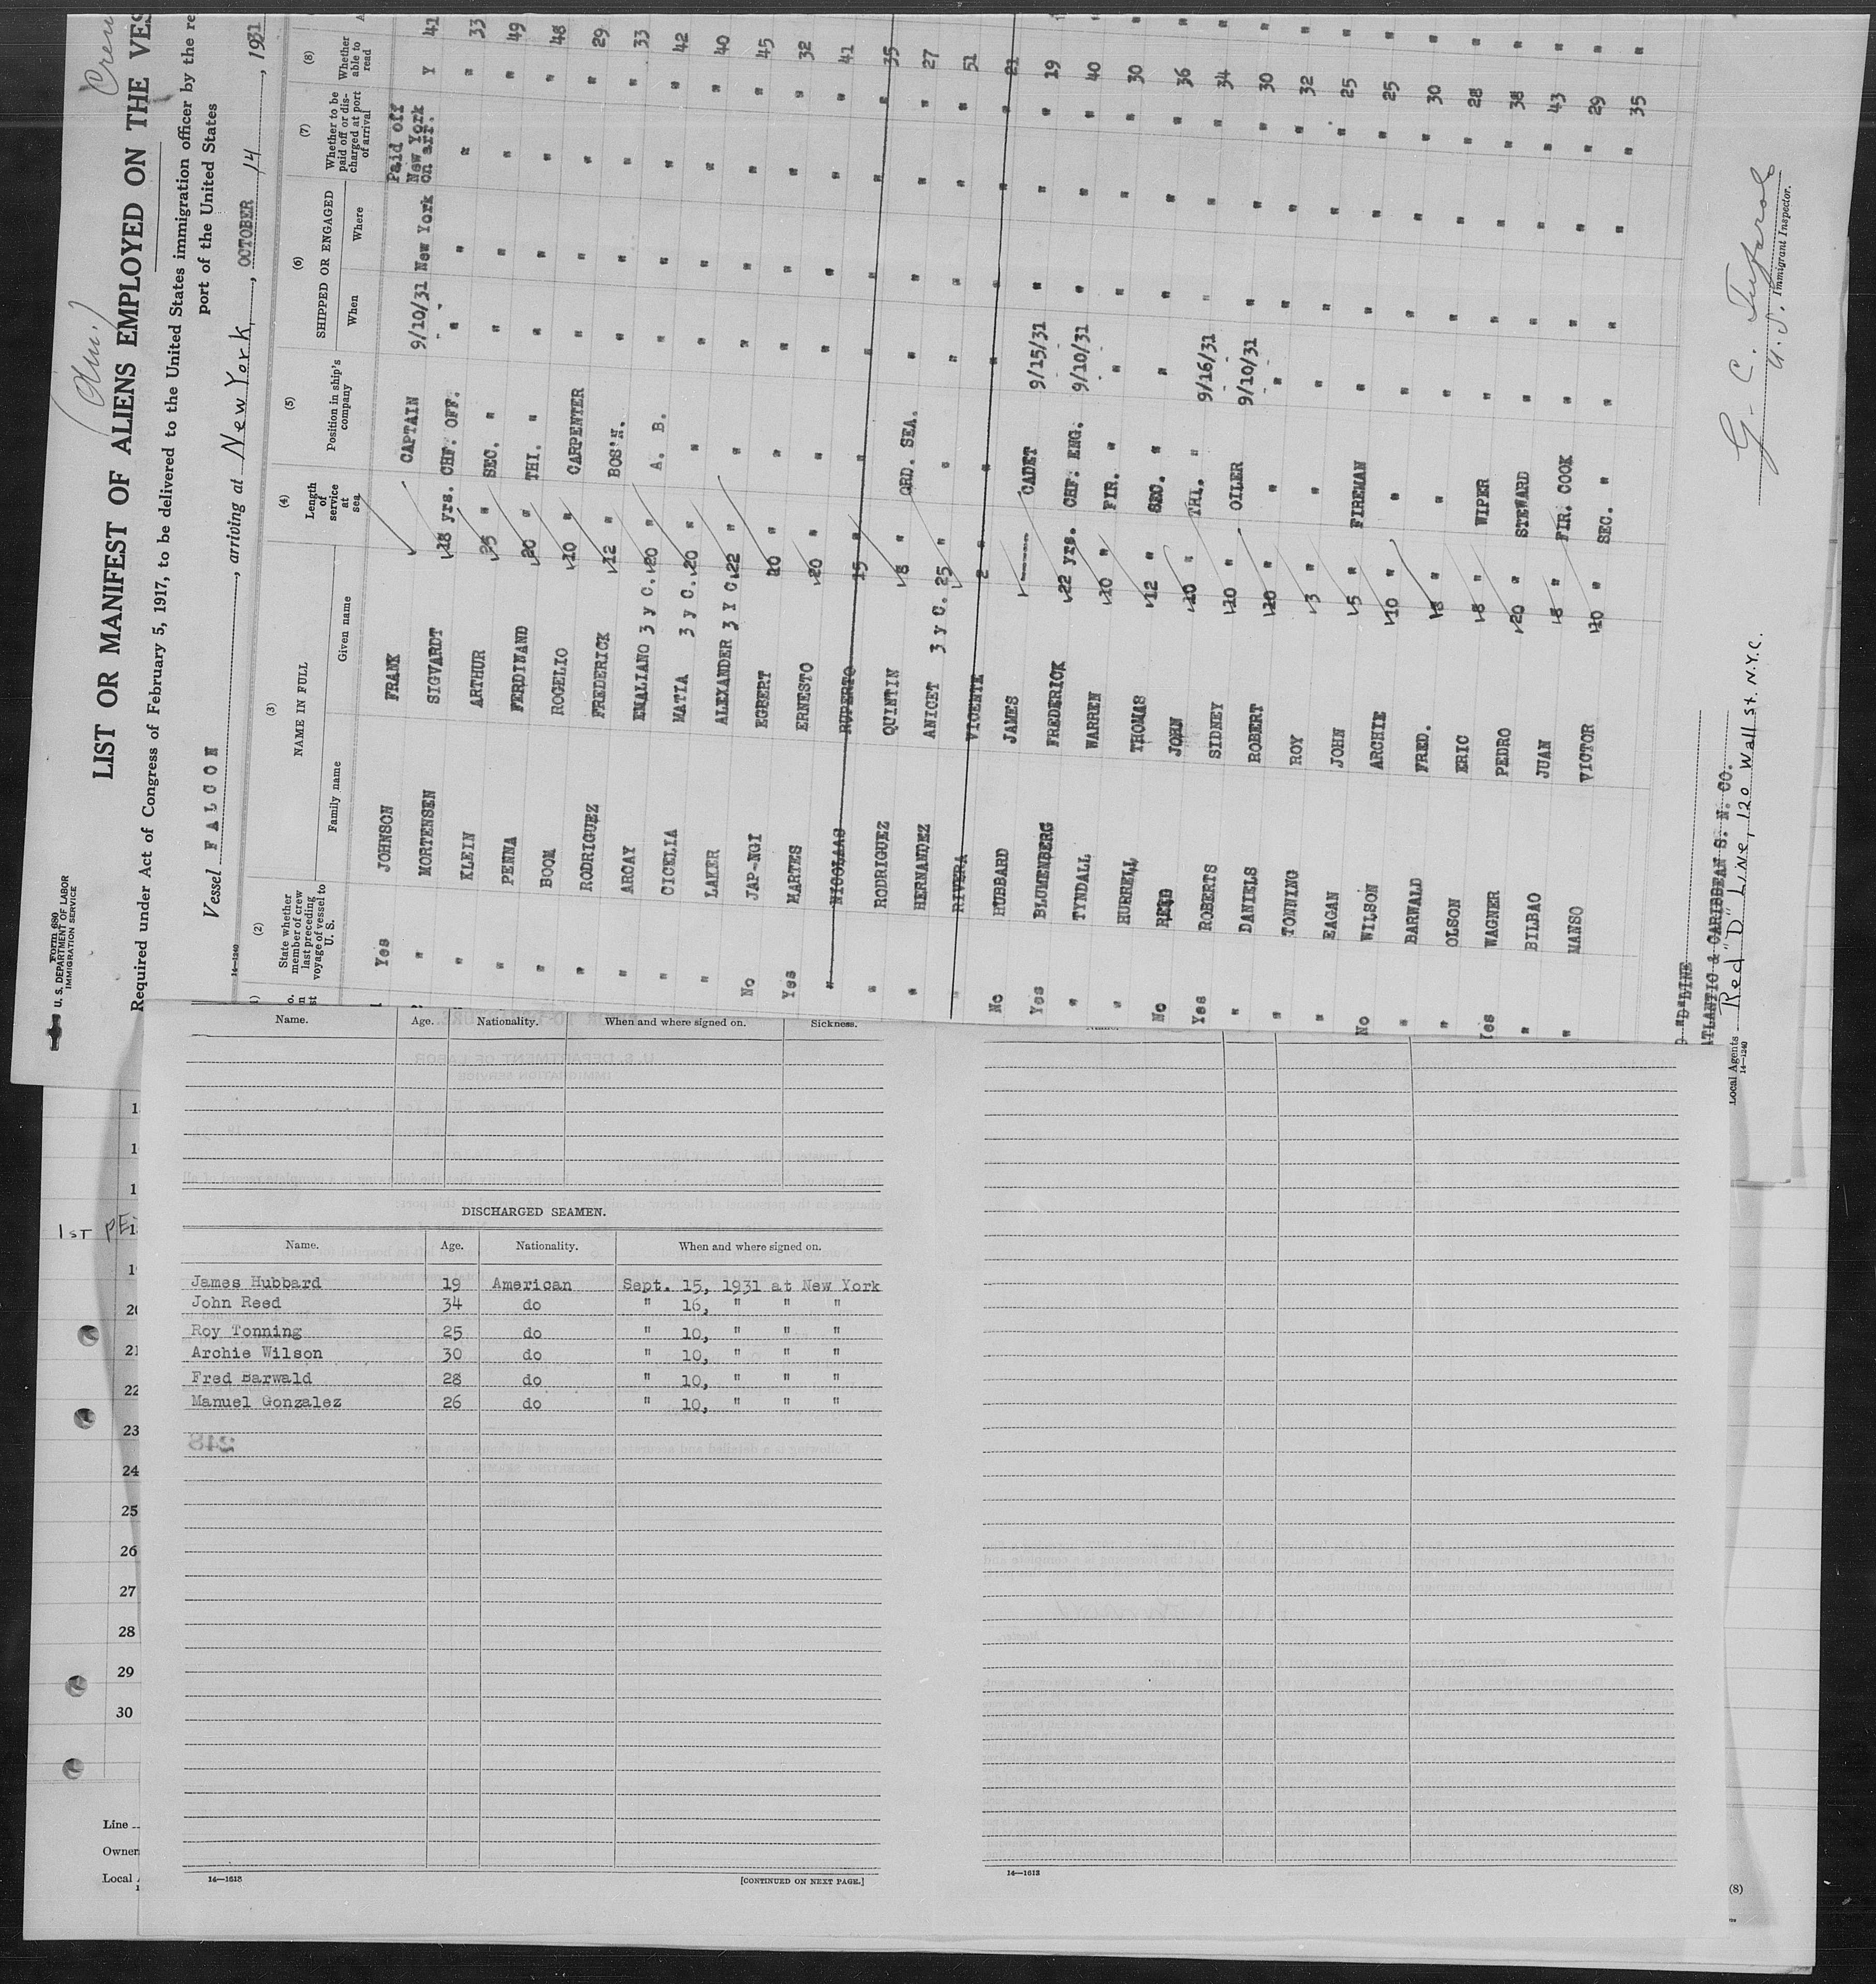 Form 680
U. S. DEPARTMENT OF LABOR
IMMIGRATION SERVICE
LIST OR MANIFEST OF ALIENS EMPLOYED ON THE VES
Required under Act of Congress of February 5, 1917, to be delivered to the United States immigration officer by the re
port of the United States
Vessel FALCON, arriving at New York, OCTOBER 14, 1931
14-1240
(2) (3) (4) (5) (6) (7) (8)
State whether member of crew last preceding voyage of vessel to U. S.
NAME IN FULL
Family name Given name
Length of service at sea
Position in ship's company
SHIPPED OR ENGAGED
When Where
Whether to be paid off or discharged at port of arrival
Whether able to read
Yes JOHNSON FRANK CAPTAIN 9/10/31 New York Paid off New York on arr. Y 41
" MORTENSEN SIGVARDT 18 yrs. CHF. OFF. " " " " 33
" KLEIN ARTHUR 25 " SEC. " " " " " 49
" PENNA FERDINAND 20 " THI. " " " " " 48
" BOOM ROGELIO 10 " CARPENTER " " " " 29
" RODRIGUEZ FREDERICK 12 " BOS'N. " " " " 33
" ARCAY EMALIANO 3 y C. 20 " A. B. " " " " 42
" CICELIA MATIA 3 y C. 20 " " " " " " 40
" LAKER ALEXANDER 3 Y C. 22 " " " " " " 45
No JAP-NGI EGBERT 10 " " " " " " 32
Yes MARTES ERNESTO 20 " " " " " " 41
" NICOLAAS RUPERTO 15 " " " " " " 35
" RODRIGUEZ QUINTIN 8 " ORD. SEA. " " " " 27
" HERNANDEZ ANICET 3 y C. 25 " " " " " " 51
" RIVERA VICENTE 2 " " " " " " 21
No HUBBARD JAMES ------ CADET 9/15/31 " " " 19
Yes BLUMENBERG FREDERICK 22 yrs. CHF. ENG. 9/10/31 " " " 40
" TYNDALL WARREN 10 " FIR. " " " " " 30
" HURRELL THOMAS 12 " SEC. " " " " " 36
No REED JOHN 10 " THI. " 9/16/31 " " " 34
Yes ROBERTS SIDNEY 10 " OILER 9/10/31 " " " 30
" DANIELS ROBERT 20 " " " " " " 32
" TONNING ROY 3 " " " " " " 25
" EAGAN JOHN 5 " FIREMAN " " " " 25
No WILSON ARCHIE 10 " " " " " " 30
" BARWALD FRED. 8 " " " " " " 28
" OLSON ERIC 8 " WIPER " " " " 38
Yes WAGNER PEDRO 20 " STEWARD " " " " 43
" BILBAO JUAN 8 " FIR. COOK " " " " 29
" MANSO VICTOR 10 " SEC. " " " " " 35
"D" LINE
ATLANTIC & CARIBBEAN S. N. CO.
Local Agents Red "D" Line, 120 Wall St. N.Y.C.
14-1240
U. S. Immigrant Inspector.
Name. Age. Nationality. When and where signed on. Sickness.
DISCHARGED SEAMEN.
Name. Age. Nationality. When and where signed on.
James Hubbard 19 American Sept. 15, 1931 at New York
John Reed 34 do " 16, " " "
Roy Tonning 25 do " 10, " " "
Archie Wilson 30 do " 10, " " "
Fred Barwald 28 do " 10, " " "
Manuel Gonzalez 26 do " 10, " " "
14-1613
[CONTINUED ON NEXT PAGE.]
14-1613
1ST
20
21
22
23
24
25
26
27
28
29
30
Line
Owner
Local
(8)